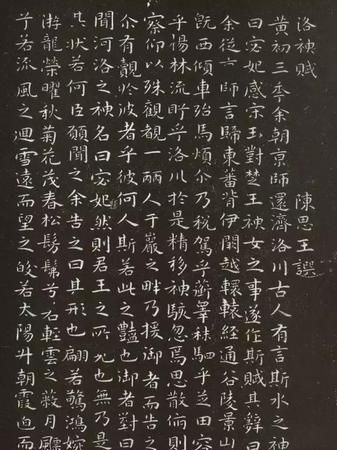 洛神賦 陳思王譔
黃初三年余朝京師還濟洛川古人有言斯水之神
曰宓妃感宋玉對楚王神女之事遂作斯賦其辭曰
余從六師言歸東蕃背伊闕越轘轅經通谷陵景山
旣西傾車殆馬煩尒乃稅駕乎蘅皋秣駟乎芝田容
乎楊林流眄乎洛川於是精移神駭忽焉思散俯則
察仰以殊觀覩一麗人于巖之畔乃援御者而告之
尒有覿於彼者乎彼何人斯若此之豔也御者對曰
聞河洛之神名曰宓妃然則君王之所見也無乃是
其狀若何臣願聞之余告之曰其形也翩若驚鴻婉
游龍榮曜秋菊花茂春松髣髴兮若輕雲之蔽月飄
兮若流風之迴雪遠而望之皎若太陽升朝霞迫而